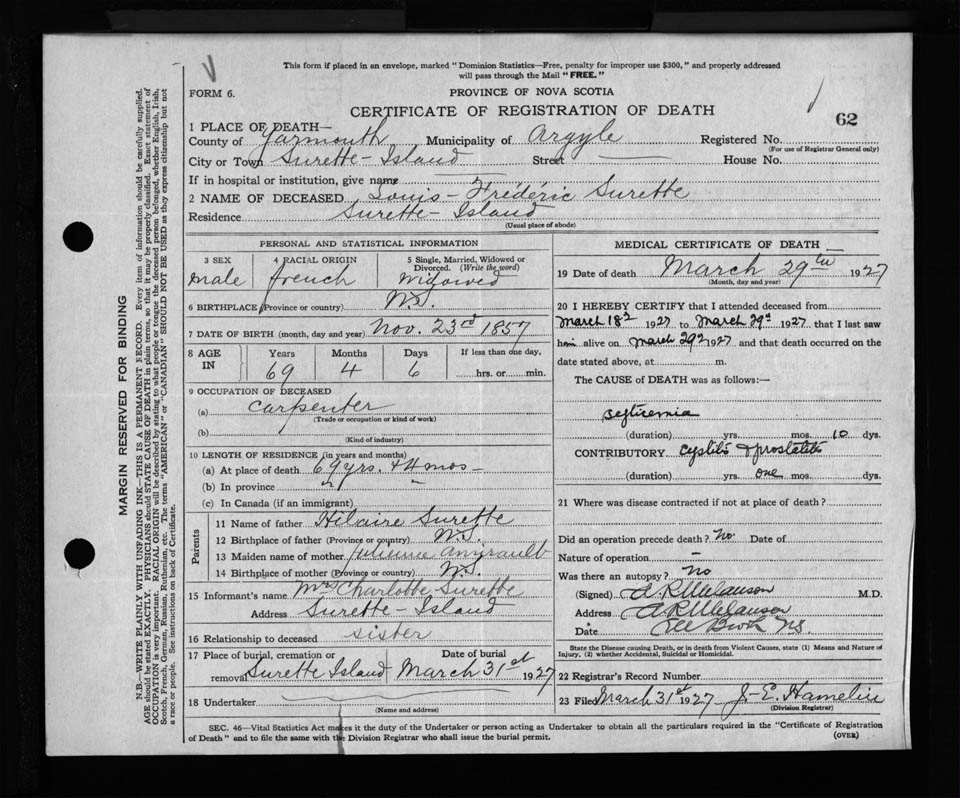 This form if placed in an envelope, marked "Dominion Statistics—Free, penalty for improper use $300," and properly addressed
will pass through the Mail "FREE."
FORM 6.
PROVINCE OF NOVA SCOTIA
CERTIFICATE OF REGISTRATION OF DEATH
62
1 PLACE OF DEATH—
County of Yarmouth Municipality of Argyle Registered No.
(For use of Registrar General only)
City or Town Surette-Island Street House No.
If in hospital or institution, give name
2 NAME OF DECEASED Louis-Fréderic Surette
Residence Surette-Island
(Usual place of abode)
PERSONAL AND STATISTICAL INFORMATION
3 SEX 4 RACIAL ORIGIN 5 Single, Married, Widowed or
Divorced. (Write the word)
male french Widowed
6 BIRTHPLACE (Province or country) N.S.
7 DATE OF BIRTH (month, day and year) Nov. 23rd 1857
8 AGE IN Years Months Days If less than one day,
69 4 6 hrs. or min.
9 OCCUPATION OF DECEASED
(a) carpenter
(Trade or occupation or kind of work)
(b)
(Kind of industry)
10 LENGTH OF RESIDENCE (in years and months)
(a) At place of death 69 yrs. + 4 mos —
(b) In province " "
(c) In Canada (if an immigrant)
Parents
11 Name of father Hilaire Surette
12 Birthplace of father (Province or country) N.S.
13 Maiden name of mother Julienne
14 Birthplace of mother (Province or country) N.S.
15 Informant's name Mrs Charlotte Surette
Address Surette-Island
16 Relationship to deceased sister
17 Place of burial, cremation or Date of burial
removal Surette Island March 31st 1927
18 Undertaker
(Name and address)
MEDICAL CERTIFICATE OF DEATH
19 Date of death March 29th 1927
(Month, day and year)
20 I HEREBY CERTIFY that I attended deceased from
March 18th 1927 to March 29th 1927 that I last saw
him alive on March 29th 1927 and that death occurred on the
date stated above, at m.
The CAUSE of DEATH was as follows:—
septicemia
(duration) yrs. mos. 10 dys.
CONTRIBUTORY cystitis & prostatitis
(duration) yrs. one mos. dys.
21 Where was disease contracted if not at place of death?
Did an operation precede death? No Date of
Nature of operation —
Was there an autopsy? No
(Signed) A.R. Melanson M.D.
Address A.R. Melanson
Date
State the Disease causing Death, or in death from Violent Causes, state (1) Means and Nature of
Injury, (2) whether Accidental, Suicidal or Homicidal.
22 Registrar's Record Number
23 Filed March 31st 1927 J-E. Hamelin
(Division Registrar)
SEC. 46—Vital Statistics Act makes it the duty of the Undertaker or person acting as Undertaker to obtain all the particulars required in the "Certificate of Registration
of Death" and to file the same with the Division Registrar who shall issue the burial permit.
(OVER)
MARGIN RESERVED FOR BINDING
N.B.—WRITE PLAINLY WITH UNFADING INK—THIS IS A PERMANENT RECORD. Every item of information should be carefully supplied.
AGE should be stated EXACTLY. PHYSICIANS should STATE CAUSE OF DEATH in plain terms, so that it may be properly classified. Exact statement of
OCCUPATION is very important. RACIAL ORIGIN will be described by stating to what people or tongue the deceased person belonged, whether English, Irish,
Scotch, French, German, Russian, Ruthenian, etc. The terms "AMERICAN" or "CANADIAN" SHOULD NOT BE USED as they express citizenship but not
a race or people. See instructions on back of Certificate.